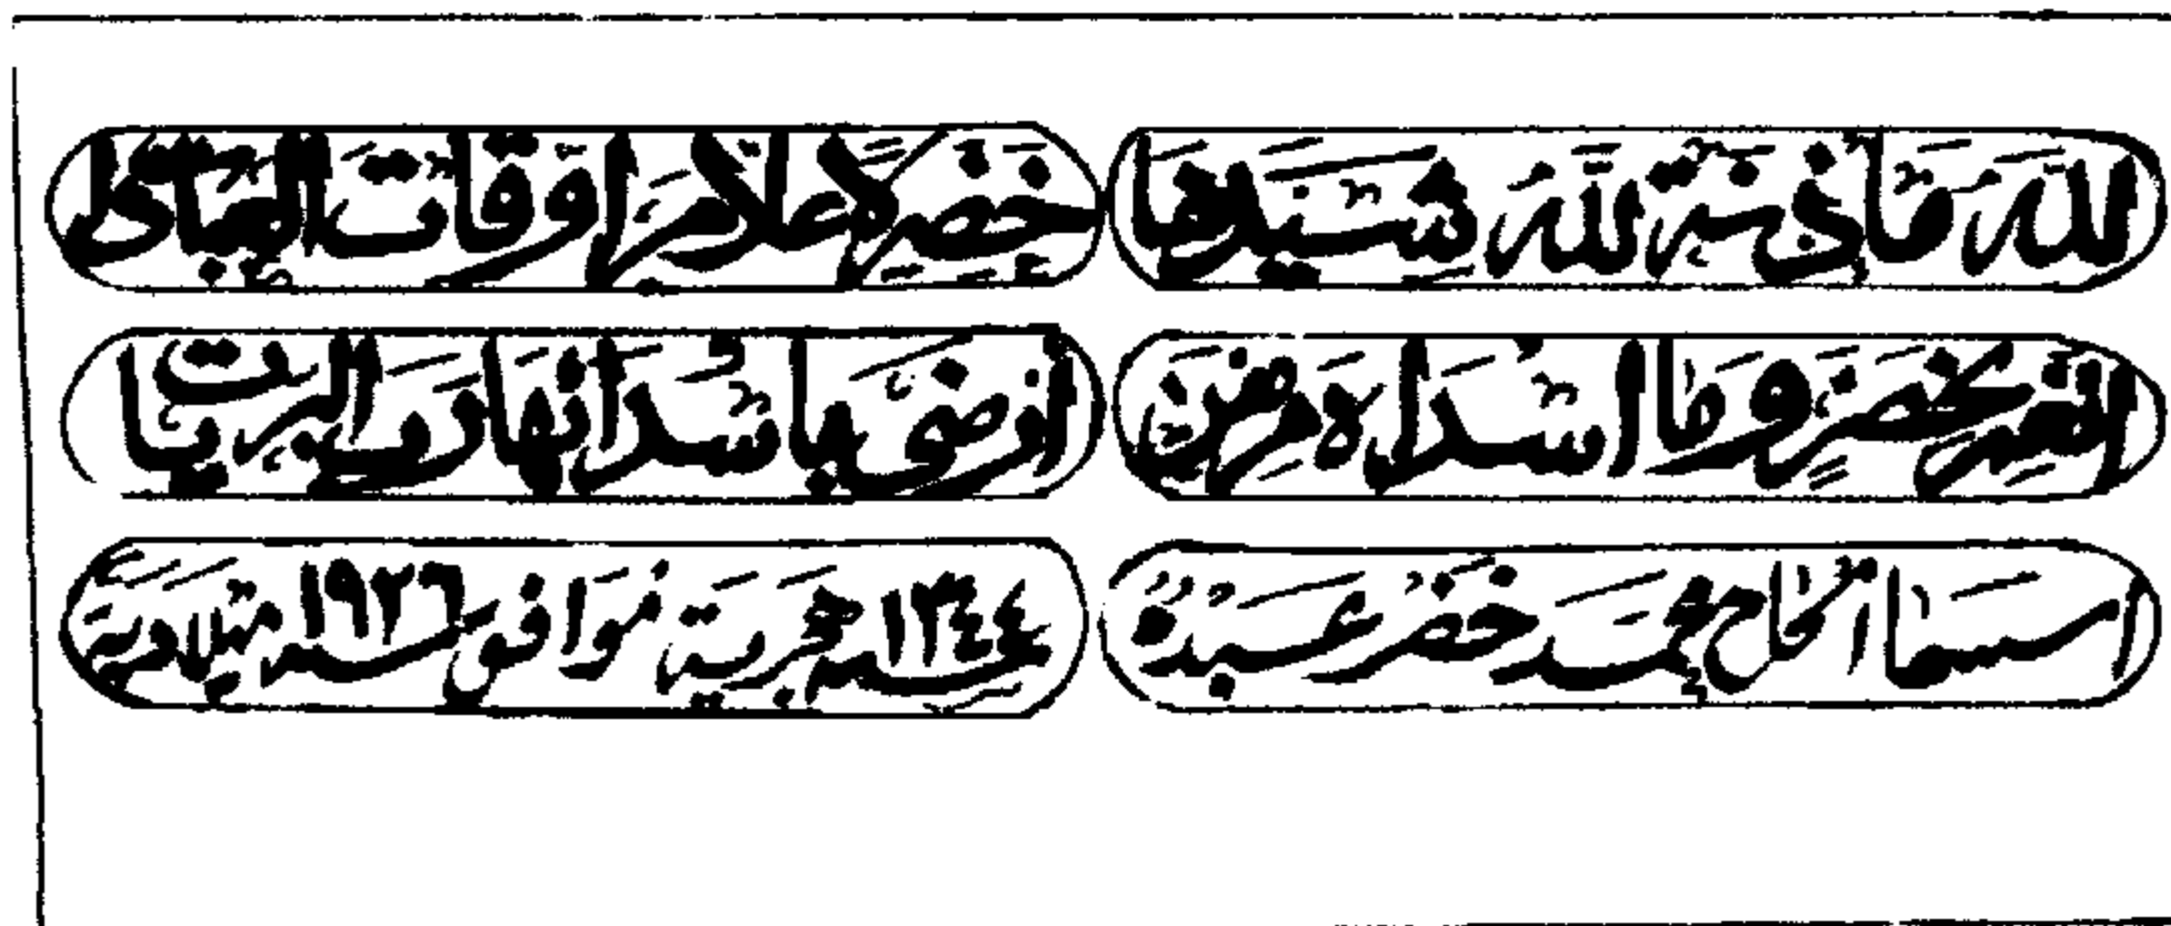 لله مأذنة لله شيدها خضر لاعلام اوقات العبادات
انعم بخضر وما اسداه من اذ رضي باسدانها رب البريات
اسما الحاج محمد خضر عبده سنة ١٣٤٤ هجرية موافق سنة ١٩٢٦ ميلادية